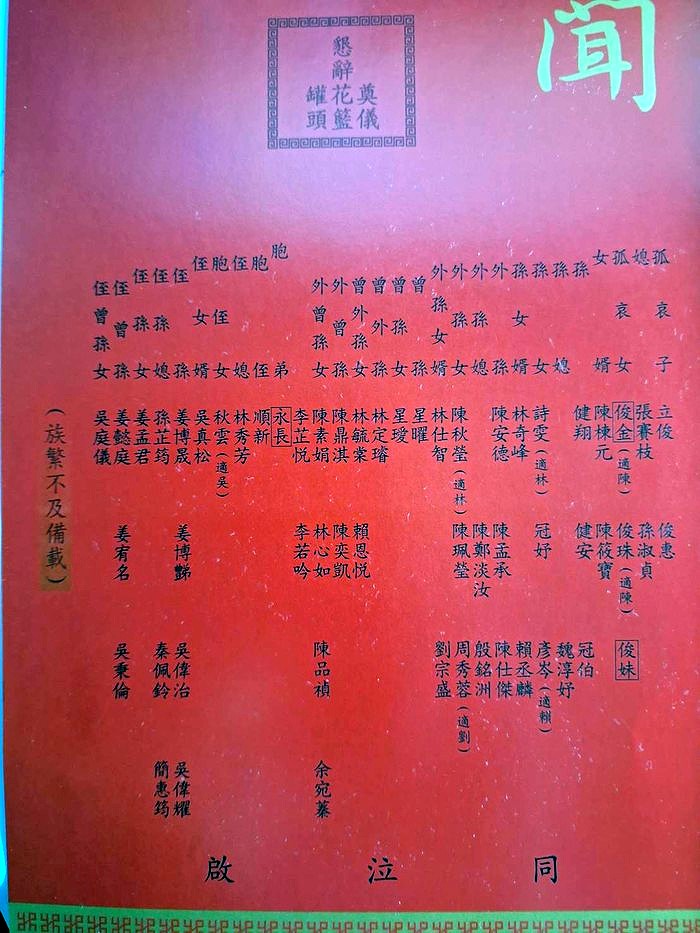 聞
奠儀
懇辭花籃
罐頭
孤哀子 立俊 俊惠
媳 張賽枝 孫淑貞
孤哀女 俊金(適陳) 俊珠(適陳) 俊妹
女婿 陳棟元 陳筱寶
孫 健翔 健安 冠伯
孫媳 魏淳妤
孫女 詩雯(適林) 冠妤 彥岑(適賴)
孫女婿 林奇峰 賴丞麟
外孫 陳安德 陳孟承 陳仕傑
外孫媳 陳鄭淡汝 殷銘洲
外孫女 陳秋瑩(適林) 陳珮瑩 周秀蓉(適劉)
外孫女婿 林仕智 劉宗盛
曾孫 星曜
曾孫女 星璦
曾外孫 林定璿
曾外孫女 林毓棠 賴恩悅
外曾孫 陳鼎淇 陳奕凱
外曾孫女 陳素娟 林心如 陳品禎 余宛蓁
李芷悅 李若吟
胞弟 永長
胞侄 順新
侄媳 林秀芳
胞侄女 秋雲(適吳)
侄女婿 吳真松
侄孫 姜博晟 姜博 吳偉治 吳偉耀
侄孫媳 孫芷筠 秦佩鈴 簡惠筠
侄孫女 姜孟君
侄曾孫 姜懿庭 姜宥名 吳秉倫
侄曾孫女 吳庭儀
(族繁不及備載)
同泣啟